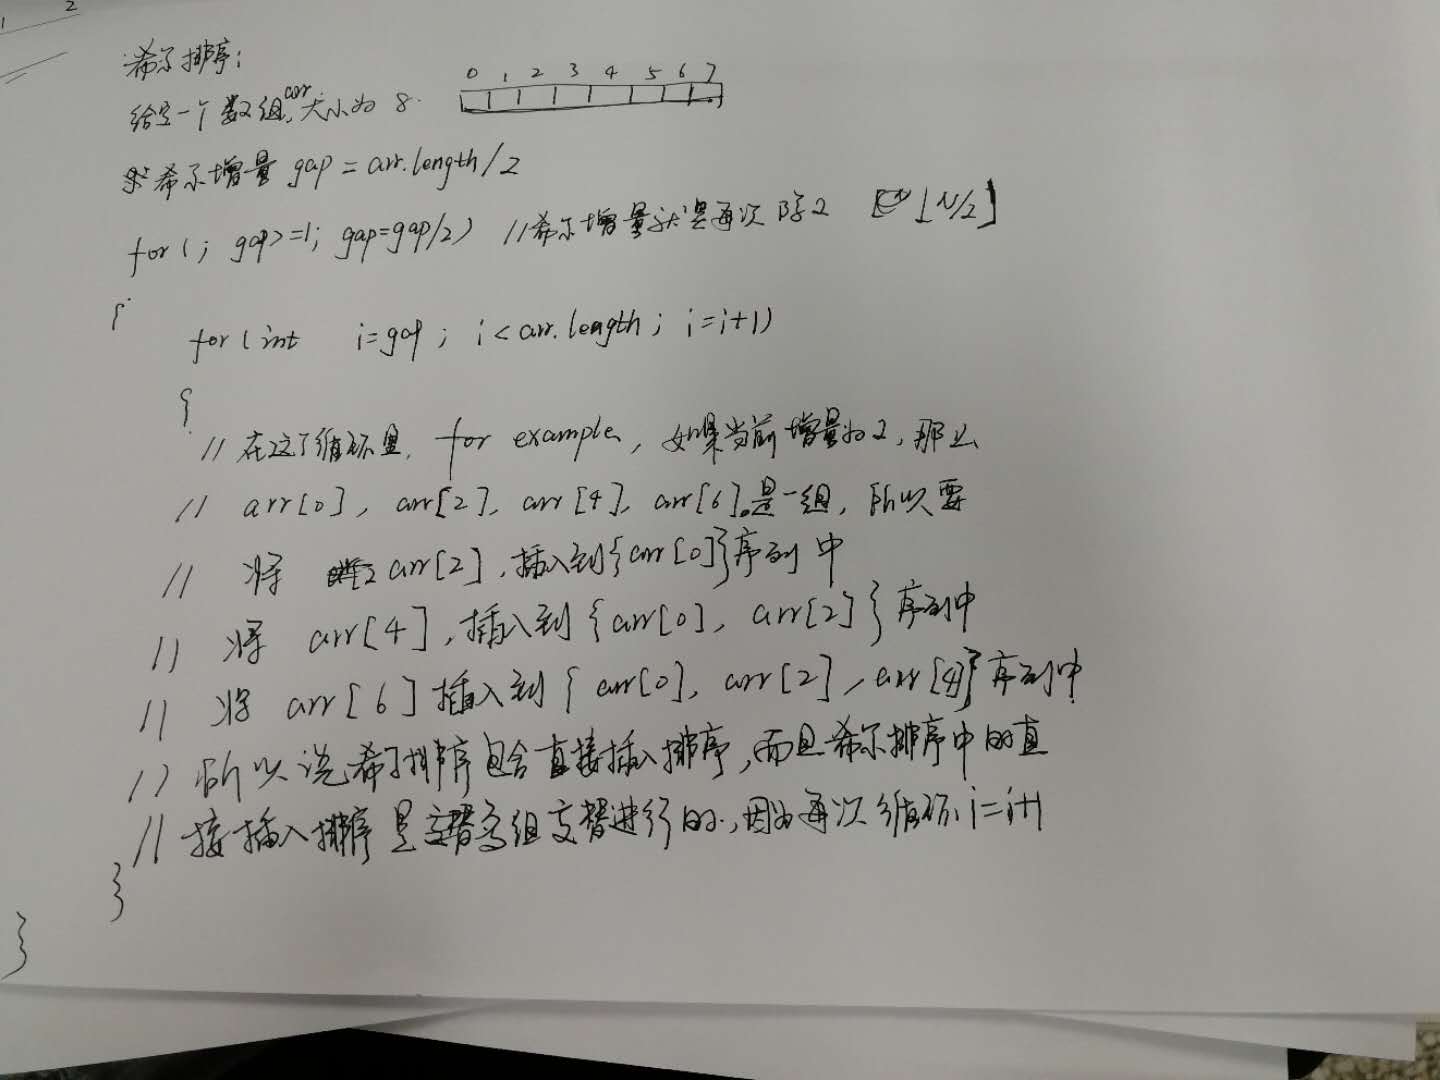 1 2
希尔排序:
给定一个数组arr,大小为 8.
0 1 2 3 4 5 6 7
求希尔增量 gap = arr.length/2
for(; gap>=1; gap=gap/2) //希尔增量就是每次除2 ⌊N/2⌋
{
for(int i=gap; i<arr.length; i=i+1)
{
// 在这个循环里, for example, 如果当前增量为2, 那么
// arr[0], arr[2], arr[4], arr[6]是一组, 所以要
// 将 arr[2], 插入到{arr[0]}序列中
// 将 arr[4], 插入到{arr[0], arr[2]}序列中
// 将 arr[6] 插入到{arr[0], arr[2], arr[4]}序列中
// 所以说希尔排序包含直接插入排序, 而且希尔排序中的直
// 接插入排序是多组交替进行的, 因为每次循环 i=i+1
}
}